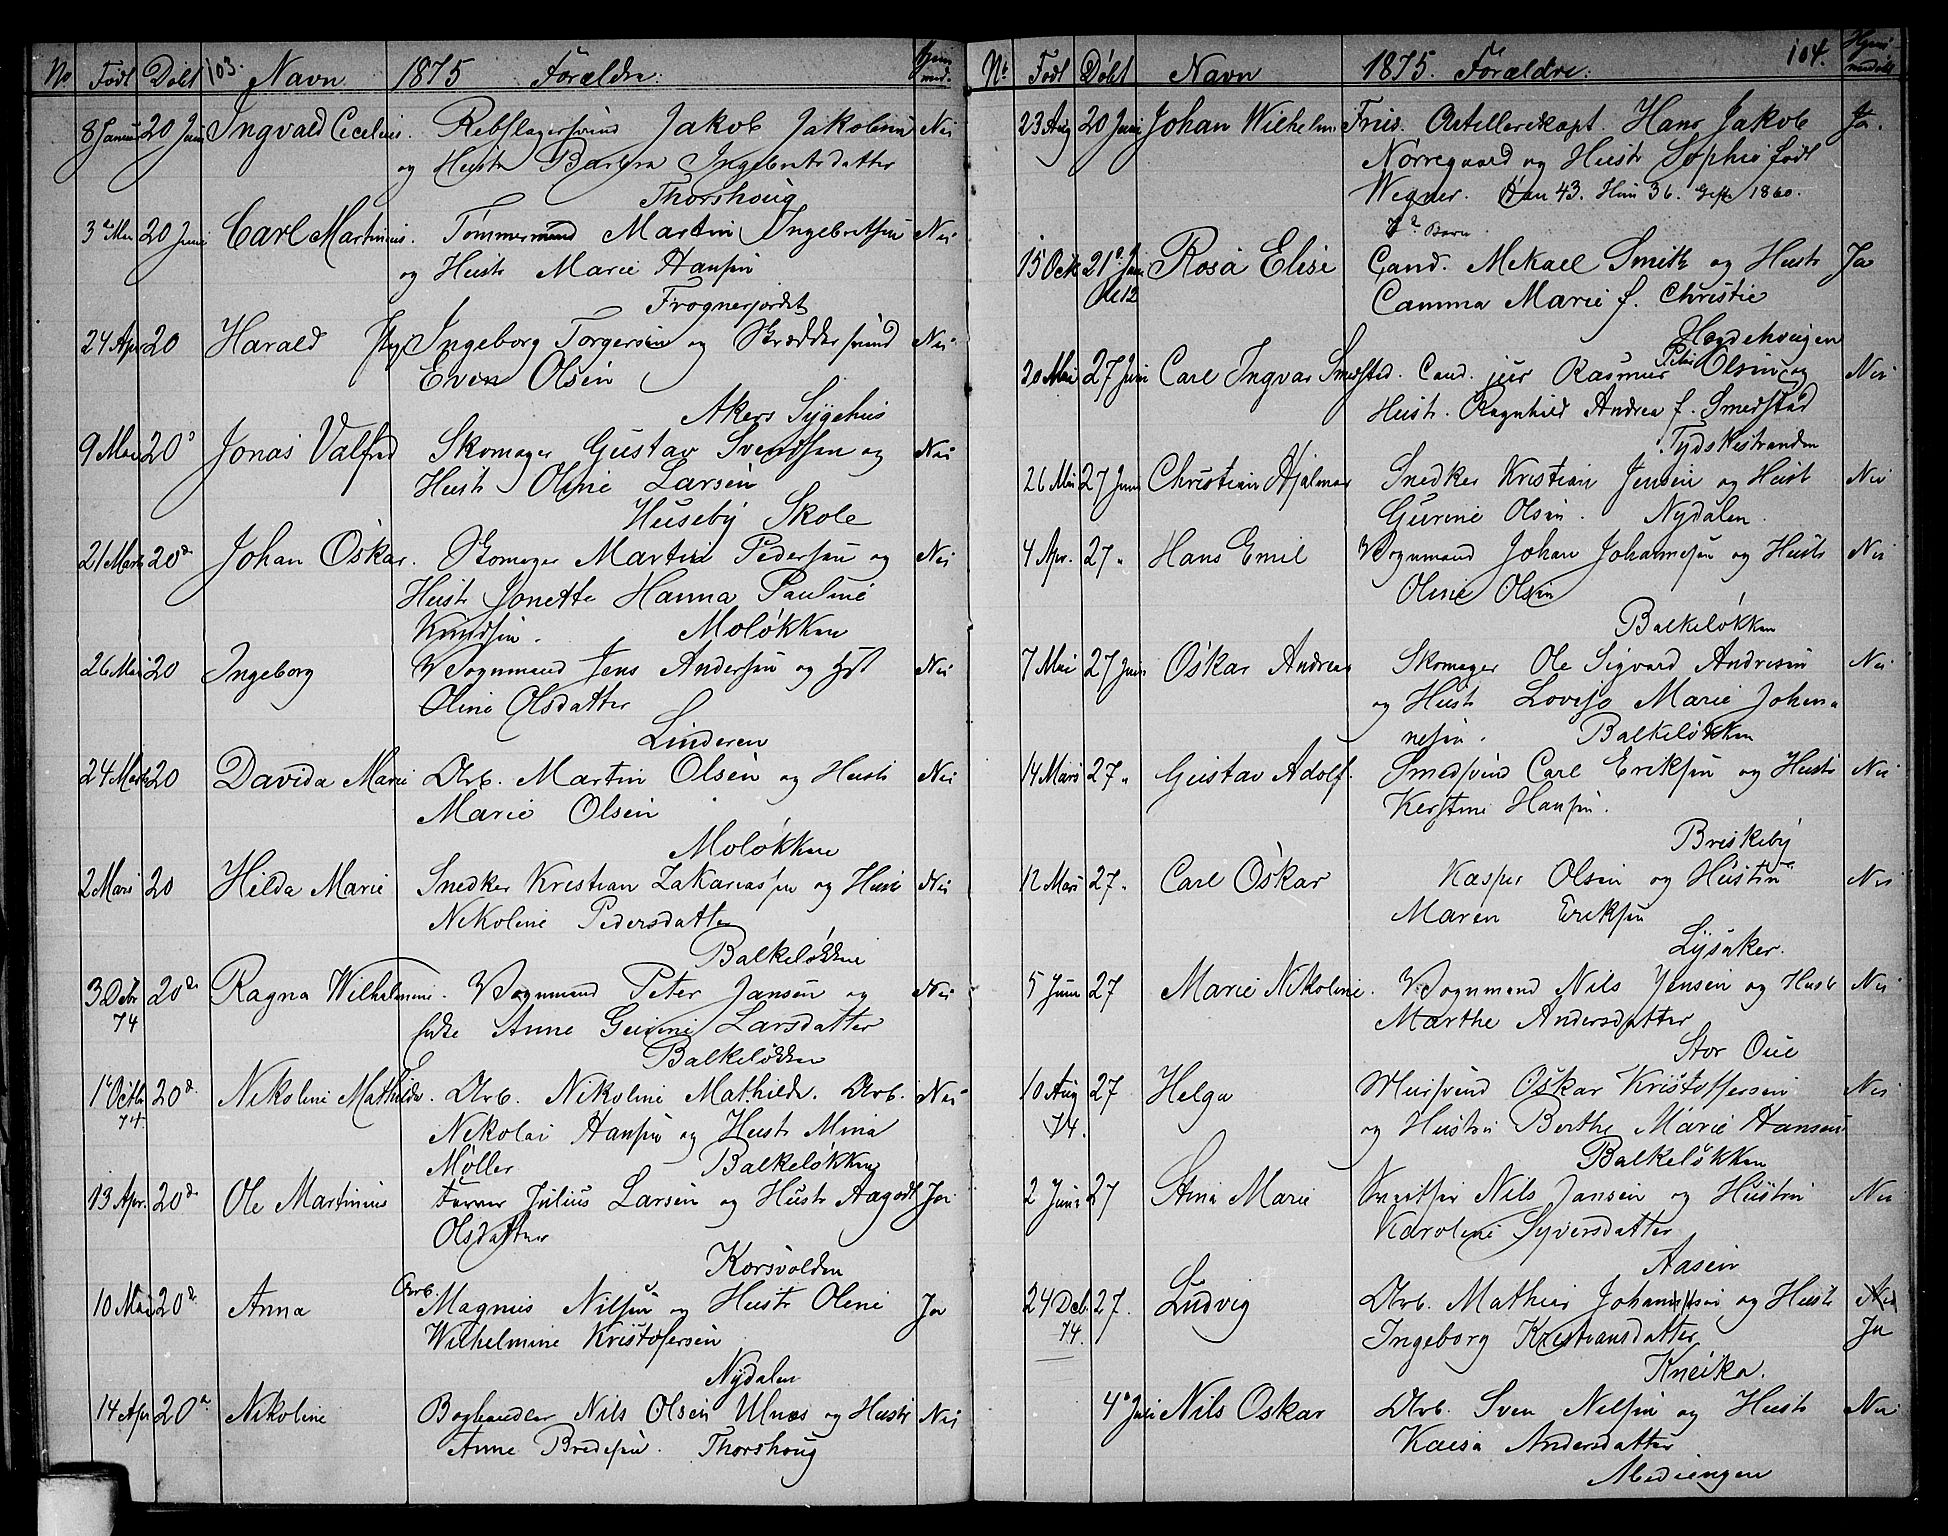 No Født Døbt 103. Navn. 1875 Forældre: Hjem med.
8 Januar 20 Juni Ingvald Cecelius. Rebslagersvend Jakob Jakobsen Nei
og Hustr Barbra Ingebretsdatter
Thorshoug
3 Mai 20 Juni Carl Martinius. Tømmermand Martin Ingebretsen Nei
og Hustr Marie Hansen
Frognerjordet
24 Apr 20 Harald Pige Ingeborg Torgersen og Skreddersvend Nei
Even Olsen
Akers Sygehus
9 Mai 20 Jonas Valfred Skomager Gustav Svendsen og Nei
Hustr Oline Larsen
Huseby Skole
21 Marts 20d Johan Oskar. Skomager Martin Pedersen og Nei
Hustr Jonette Hanna Pauline
Knudsen. Moløkken
26 Mai 20 Ingeborg Vognmand Jens Andersen og Hst Nei
Oline Olsdatter
Linderen
24 Marts 20 Davida Marie Arb. Martin Olsen og Hustr Nei
Marie Olsen
Moløkken
2 Mars 20 Hilda Marie Snedker Kristian Zakariassen og Hust Nei
Nikoline Pedersdatter
Balkeløkken
3 Debr 20d Ragna Wilhelmine. Vognmand Peter Jansen og Nei
74 Anne Gurine Larsdatter
Balkeløkken
1 Octbr 20d Nikoline Mathilde. Arb. Nikoline Mathilde. Arb. Nei
74. Nikolai Hansen og Hustr Mina
Møller Balkeløkken
13 Apr. 20d Ole Martinius Julius Larsen og Hustr Aagodt Ja
Olsdatter
Korsvolden
10 Mai 20d Anna Arb. Magnus Nilsen og Hustr Oline Ja
Wilhelmine Kristofersen
Nydalen
14 Apr 20 Nikoline Boghandler Nils Olsen Ulnæs og Hustr Nei
Anne Bredesen. Thorshoug
No Født Døbt Navn 1875. Forældre: 104. Hjem
23 Aug 20 Juni Johan Wilhelm Friis. Artillerikapt. Hans Jakob Ja.
Nørregaard og Hustr Sophie født
Wegner. Han 43. Hun 36. Gift 1860.
7d Barn.
15 Octb 21 Juni Rosa Elise Cand. Mikael Smith og Hustr Ja
Kl 12 Camma Marie f. Christie
Hægdehougen
20 Mai 27 Juni Carl Ingvar Smedstad. Cand. jur Rasmus Peter Olsen og Nei
Hustr. Ragnhild Andrea f. Smedstad
Tydskestranden
26 Mai 27 Juni Christian Hjalmar Snedker Kristian Jensen og Hust Nei
Gurine Olsen. Nydalen.
4 Apr. 27 " Hans Emil Vognmand Johan Johannesen og Hustr Nei
Oline Olsen
Balkeløkken
7 Mai 27 Juni Oskar Andreas Skomager Ole Sigvard Andresen Nei
og Hustr Lovise Marie Johan-
nesen. Balkeløkken
14 Mars 27 " Gustav Adolf. Smedsvend Carl Eriksen og Hustr Nei
Kerstine Hansen.
Briskeby
12 Mars 27 " Carl Oskar Kasper Olsen og Hustru Nei
Maren Eriksen
Lysaker.
5 Juni 27 Marie Nikoline. Vognmand Nils Jensen og Hust Nei
Marthe Andersdatter
Stor Oue
10 Aug 27 Helga Mursvend Oskar Kristoffersen Nei
74. og Hustru Berthe Marie Hansen
Balkeløkken
2 Juni 27 Stina Marie Nils Jansen og Hustru Nei
Karoline Syversdatter
Aasen
24 Dcb. 27. Ludvig Arb. Mathias Johannssen og Hustr Nei
74. Ingeborg Kristiansdatter Ja
Kneika.
4 Juli Nils Oskar Arb. Sven Nelsen og Hustr Nei
Kaisa Andersdatter